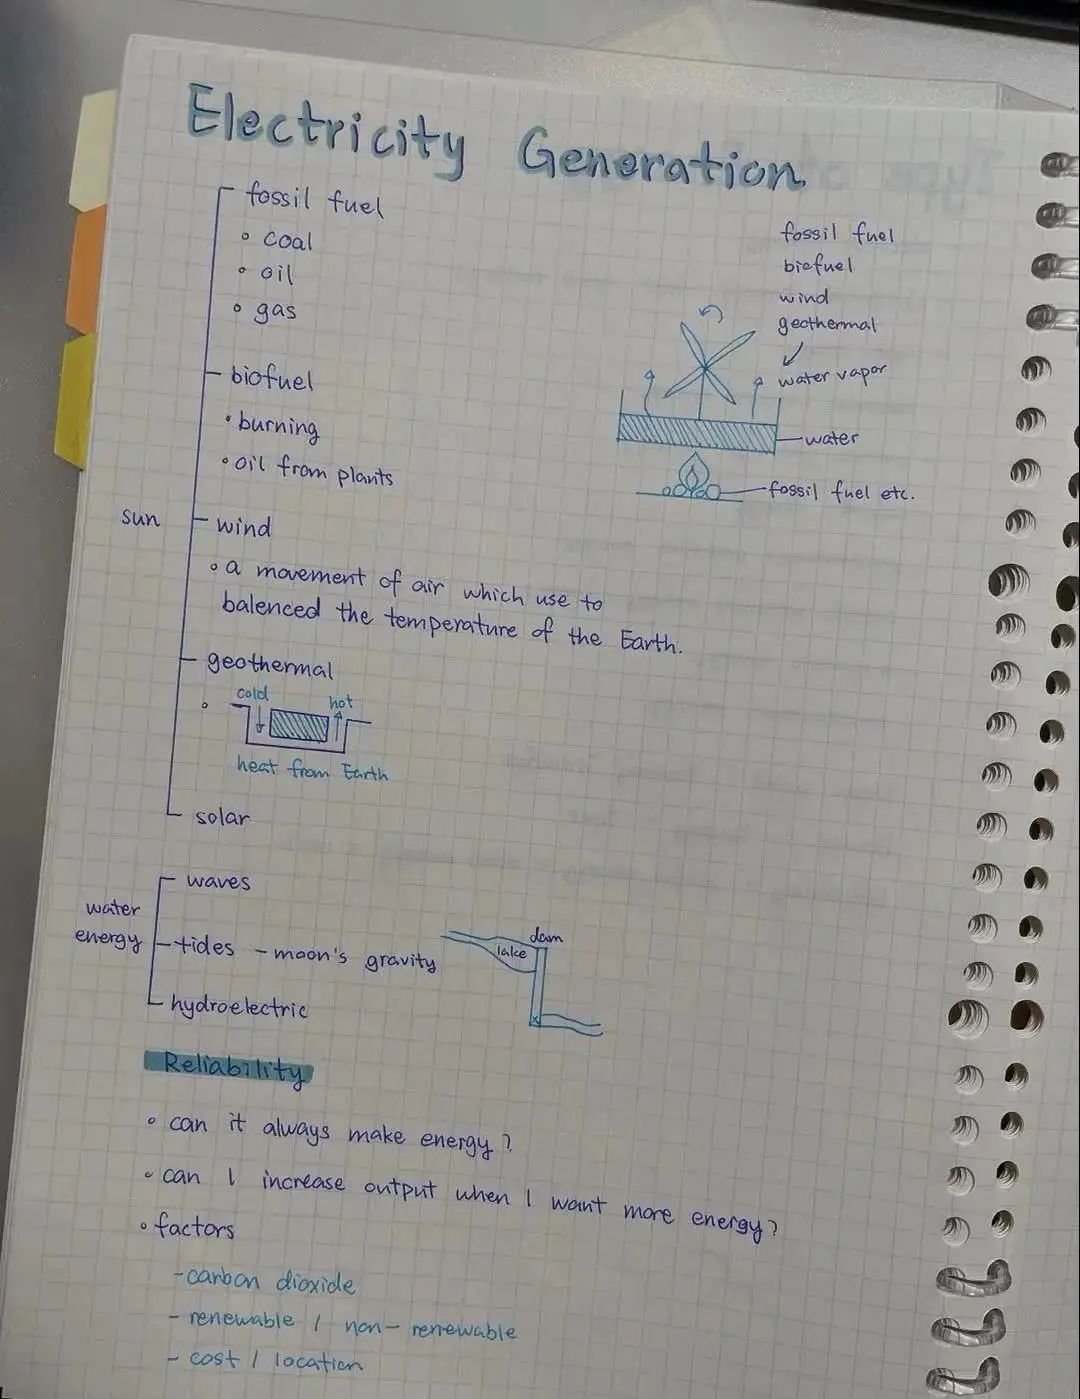 Electricity Generation
fossil fuel
◦ coal
◦ oil
◦ gas
biofuel
• burning
◦ oil from plants
sun
wind
◦ a movement of air which use to
balenced the temperature of the Earth.
geothermal
cold
hot
heat from Earth
solar
fossil fuel
biofuel
wind
geothermal
water vapor
water
fossil fuel etc.
water
energy
waves
tides - moon's gravity
hydroelectric
dam
lake
Reliability
◦ can it always make energy?
◦ can I increase output when I want more energy?
◦ factors
- carbon dioxide
- renewable / non-renewable
- cost / location